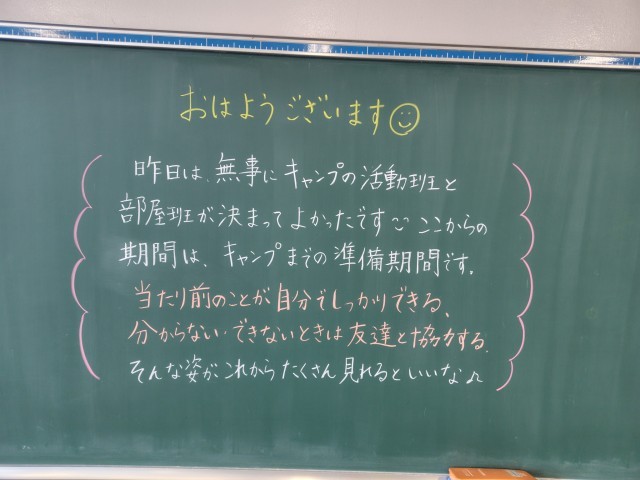 おはようございます☺
昨日は、無事にキャンプの活動班と
部屋班が決まってよかったです ここからの
期間は、キャンプまでの準備期間です。
当たり前のことが自分でしっかりできる、
分からない・できないときは友達と協力する。
そんな姿が、これからたくさん見れるといいな♫